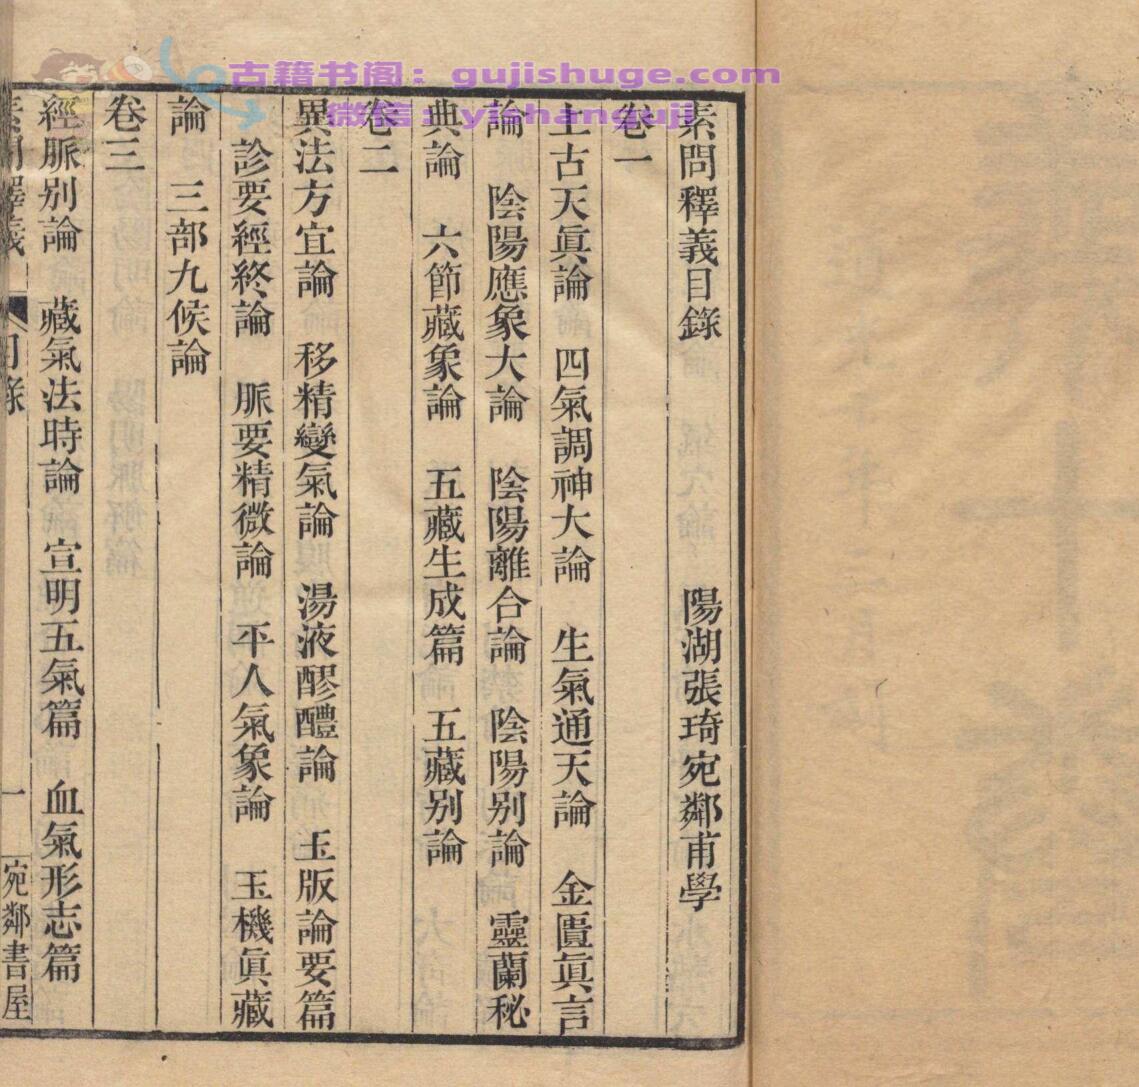 古籍书阁：gujishuge.com
微信：yishanguji
素問釋義目錄　陽湖張琦宛鄰甫學
卷一
上古天眞論　四氣調神大論　生氣通天論　金匱眞言
論　陰陽應象大論　陰陽離合論　陰陽別論　靈蘭秘
典論　六節藏象論　五藏生成篇　五藏别論
卷二
異法方宜論　移精變氣論　湯液醪醴論　玉版論要篇
診要經終論　脈要精微論　平人氣象論　玉機眞藏
論　三部九候論
卷三
經脈別論　藏氣法時論　宣明五氣篇　血氣形志篇
素問釋義　目錄　一　宛鄰書屋